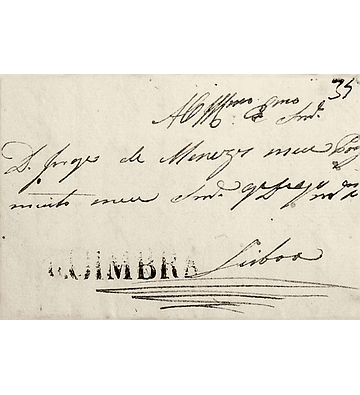 35
Illmo Exmo Snr.
D. Jorge de Menezes meu
muito meu Snr. q Ds g
COIMBRA Lisboa